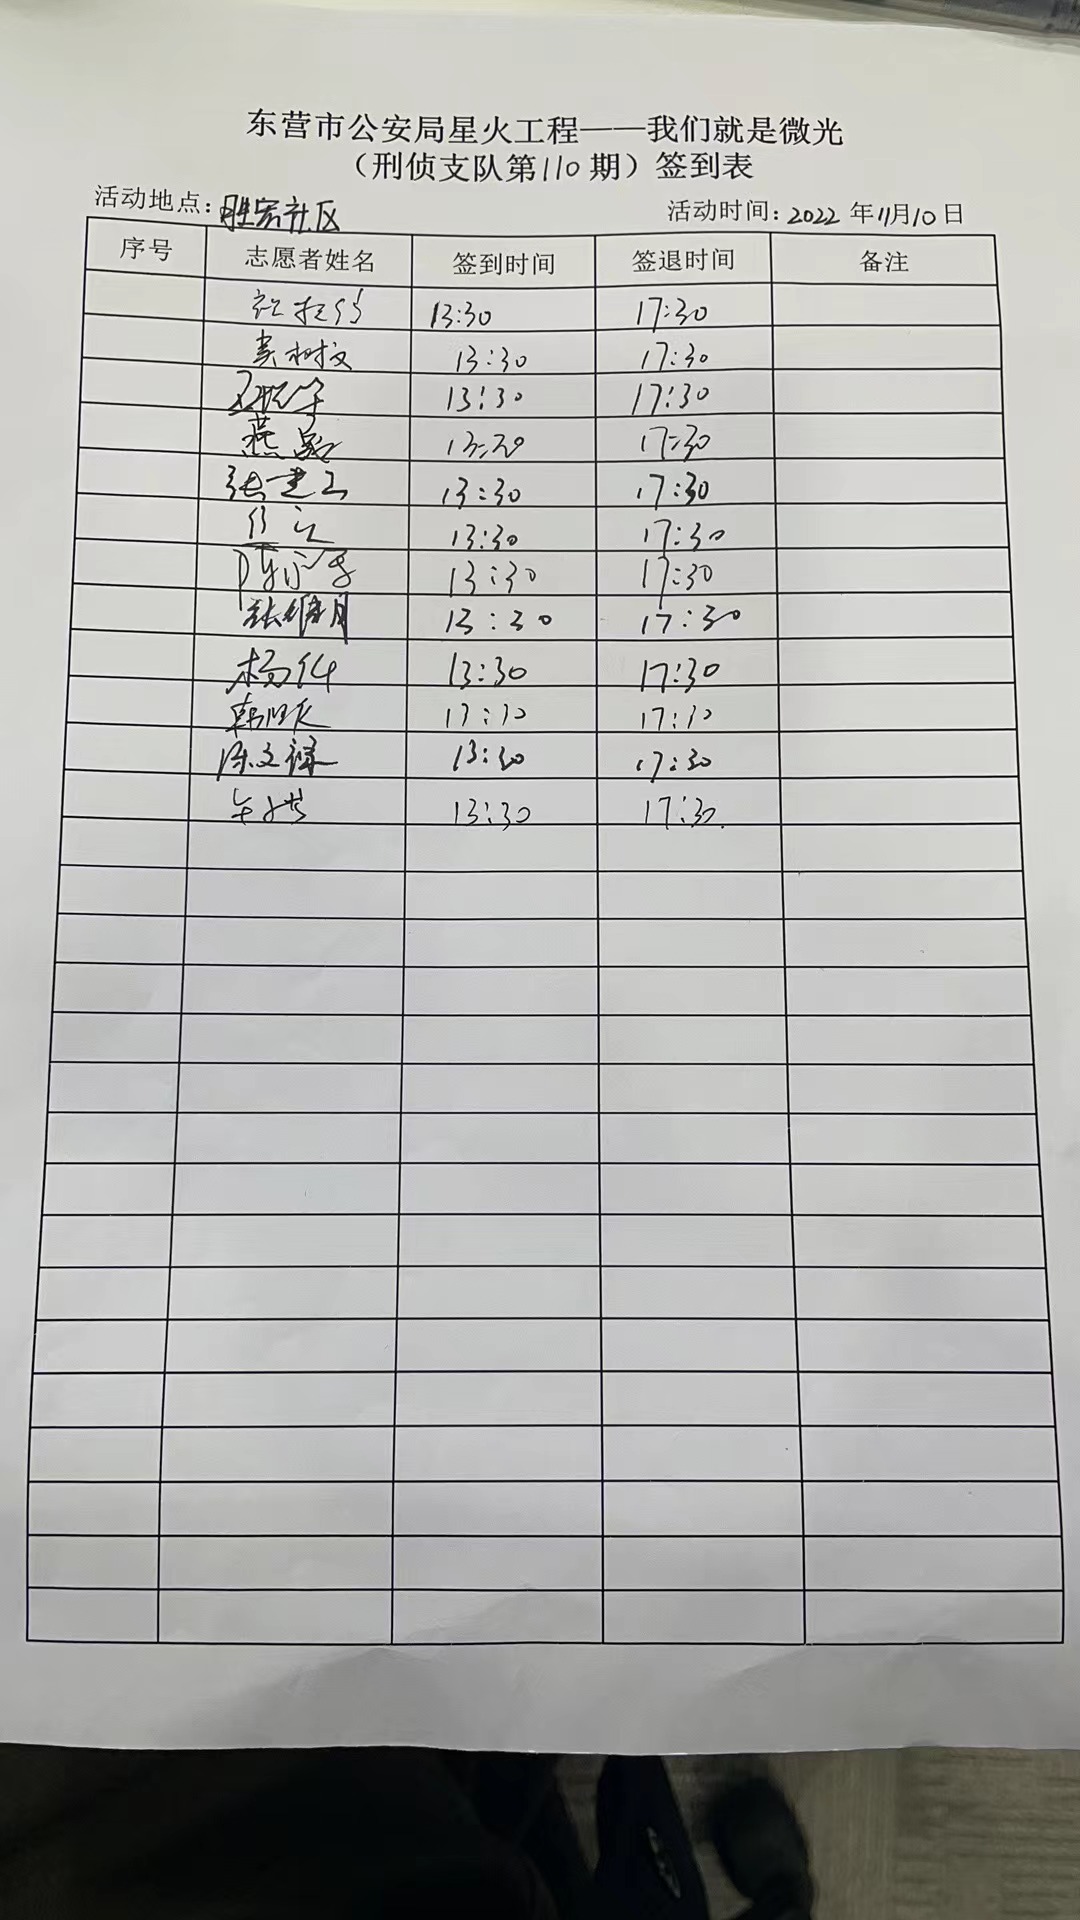 东营市公安局星火工程——我们就是微光
（刑侦支队第110期）签到表
活动地点：胜宏社区 活动时间：2022年11月10日
序号 志愿者姓名 签到时间 签退时间 备注
13:30 17:30
黄树文 13:30 17:30
13:30 17:30
燕 13:30 17:30
张建工 13:30 17:30
13:30 17:30
陈 13:30 17:30
张维月 13:30 17:30
杨伟 13:30 17:30
韩 13:30 17:30
陈文禄 13:30 17:30
13:30 17:30